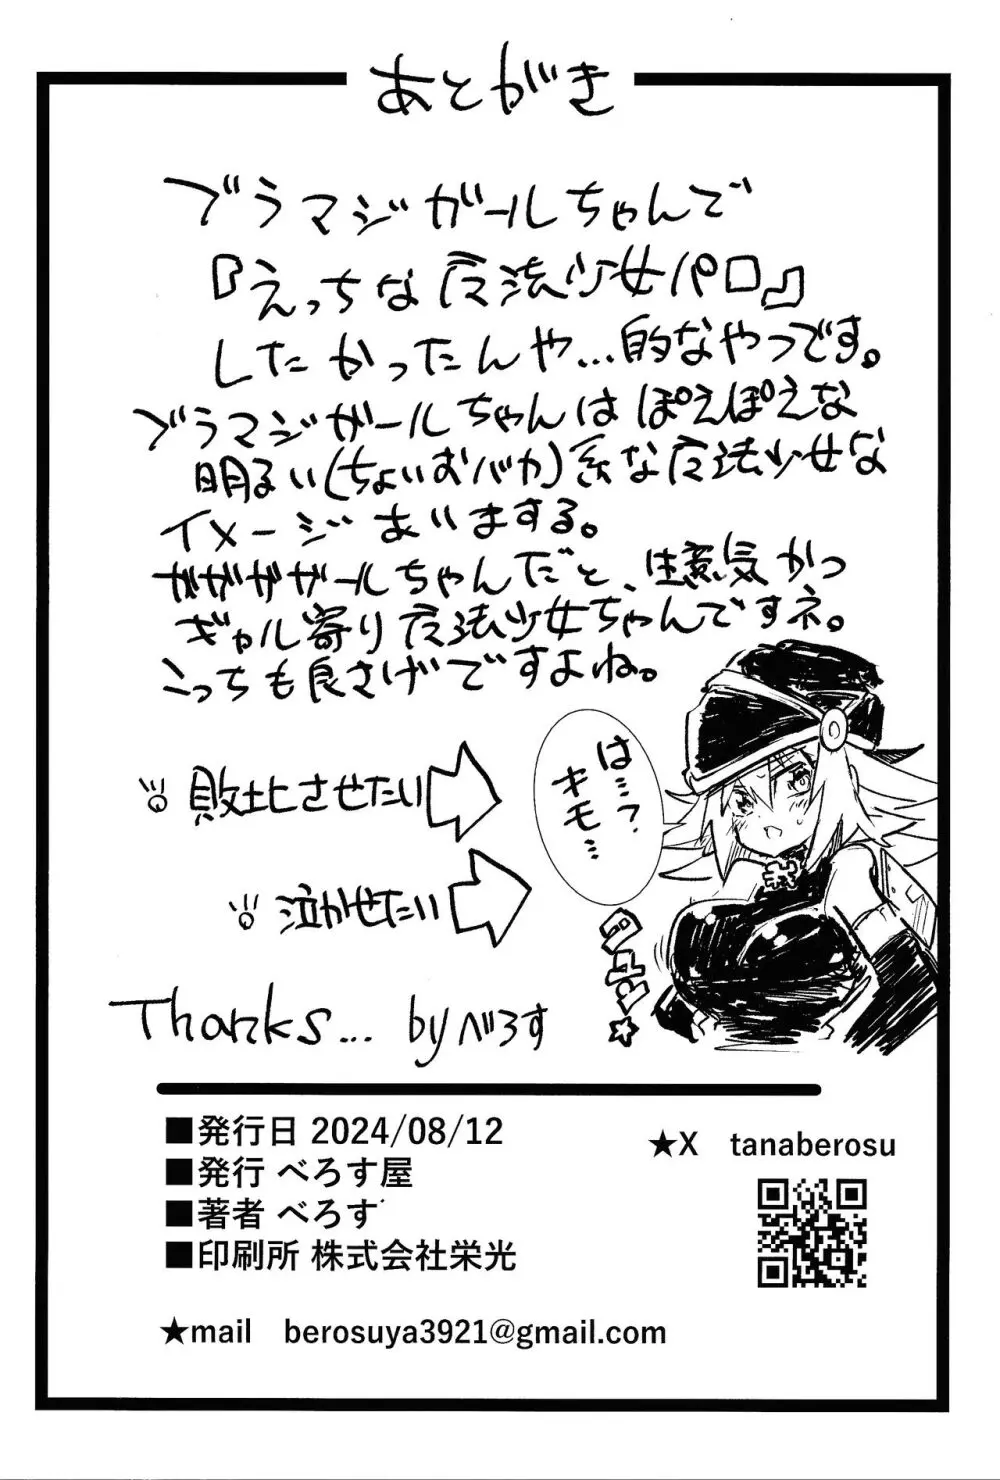 あとがき
ブラマジガールちゃんで
『えっちな魔法少女パロ』
したかったんや…的なやつです。
ブラマジガールちゃんはぽえぽえな
明るい(ちょいおバカ)系な魔法少女な
イメージありまする。
ガガガガールちゃんだと、生意気かつ
ギャル寄り魔法少女ちゃんですネ。
こっちも良さげですよね。
敗北させたい
泣かせたい
は…?
キモ…
Thanks... by べろす
■発行日 2024/08/12
■発行 べろす屋
■著者 べろす
■印刷所 株式会社栄光
★X tanaberosu
★mail berosuya3921@gmail.com